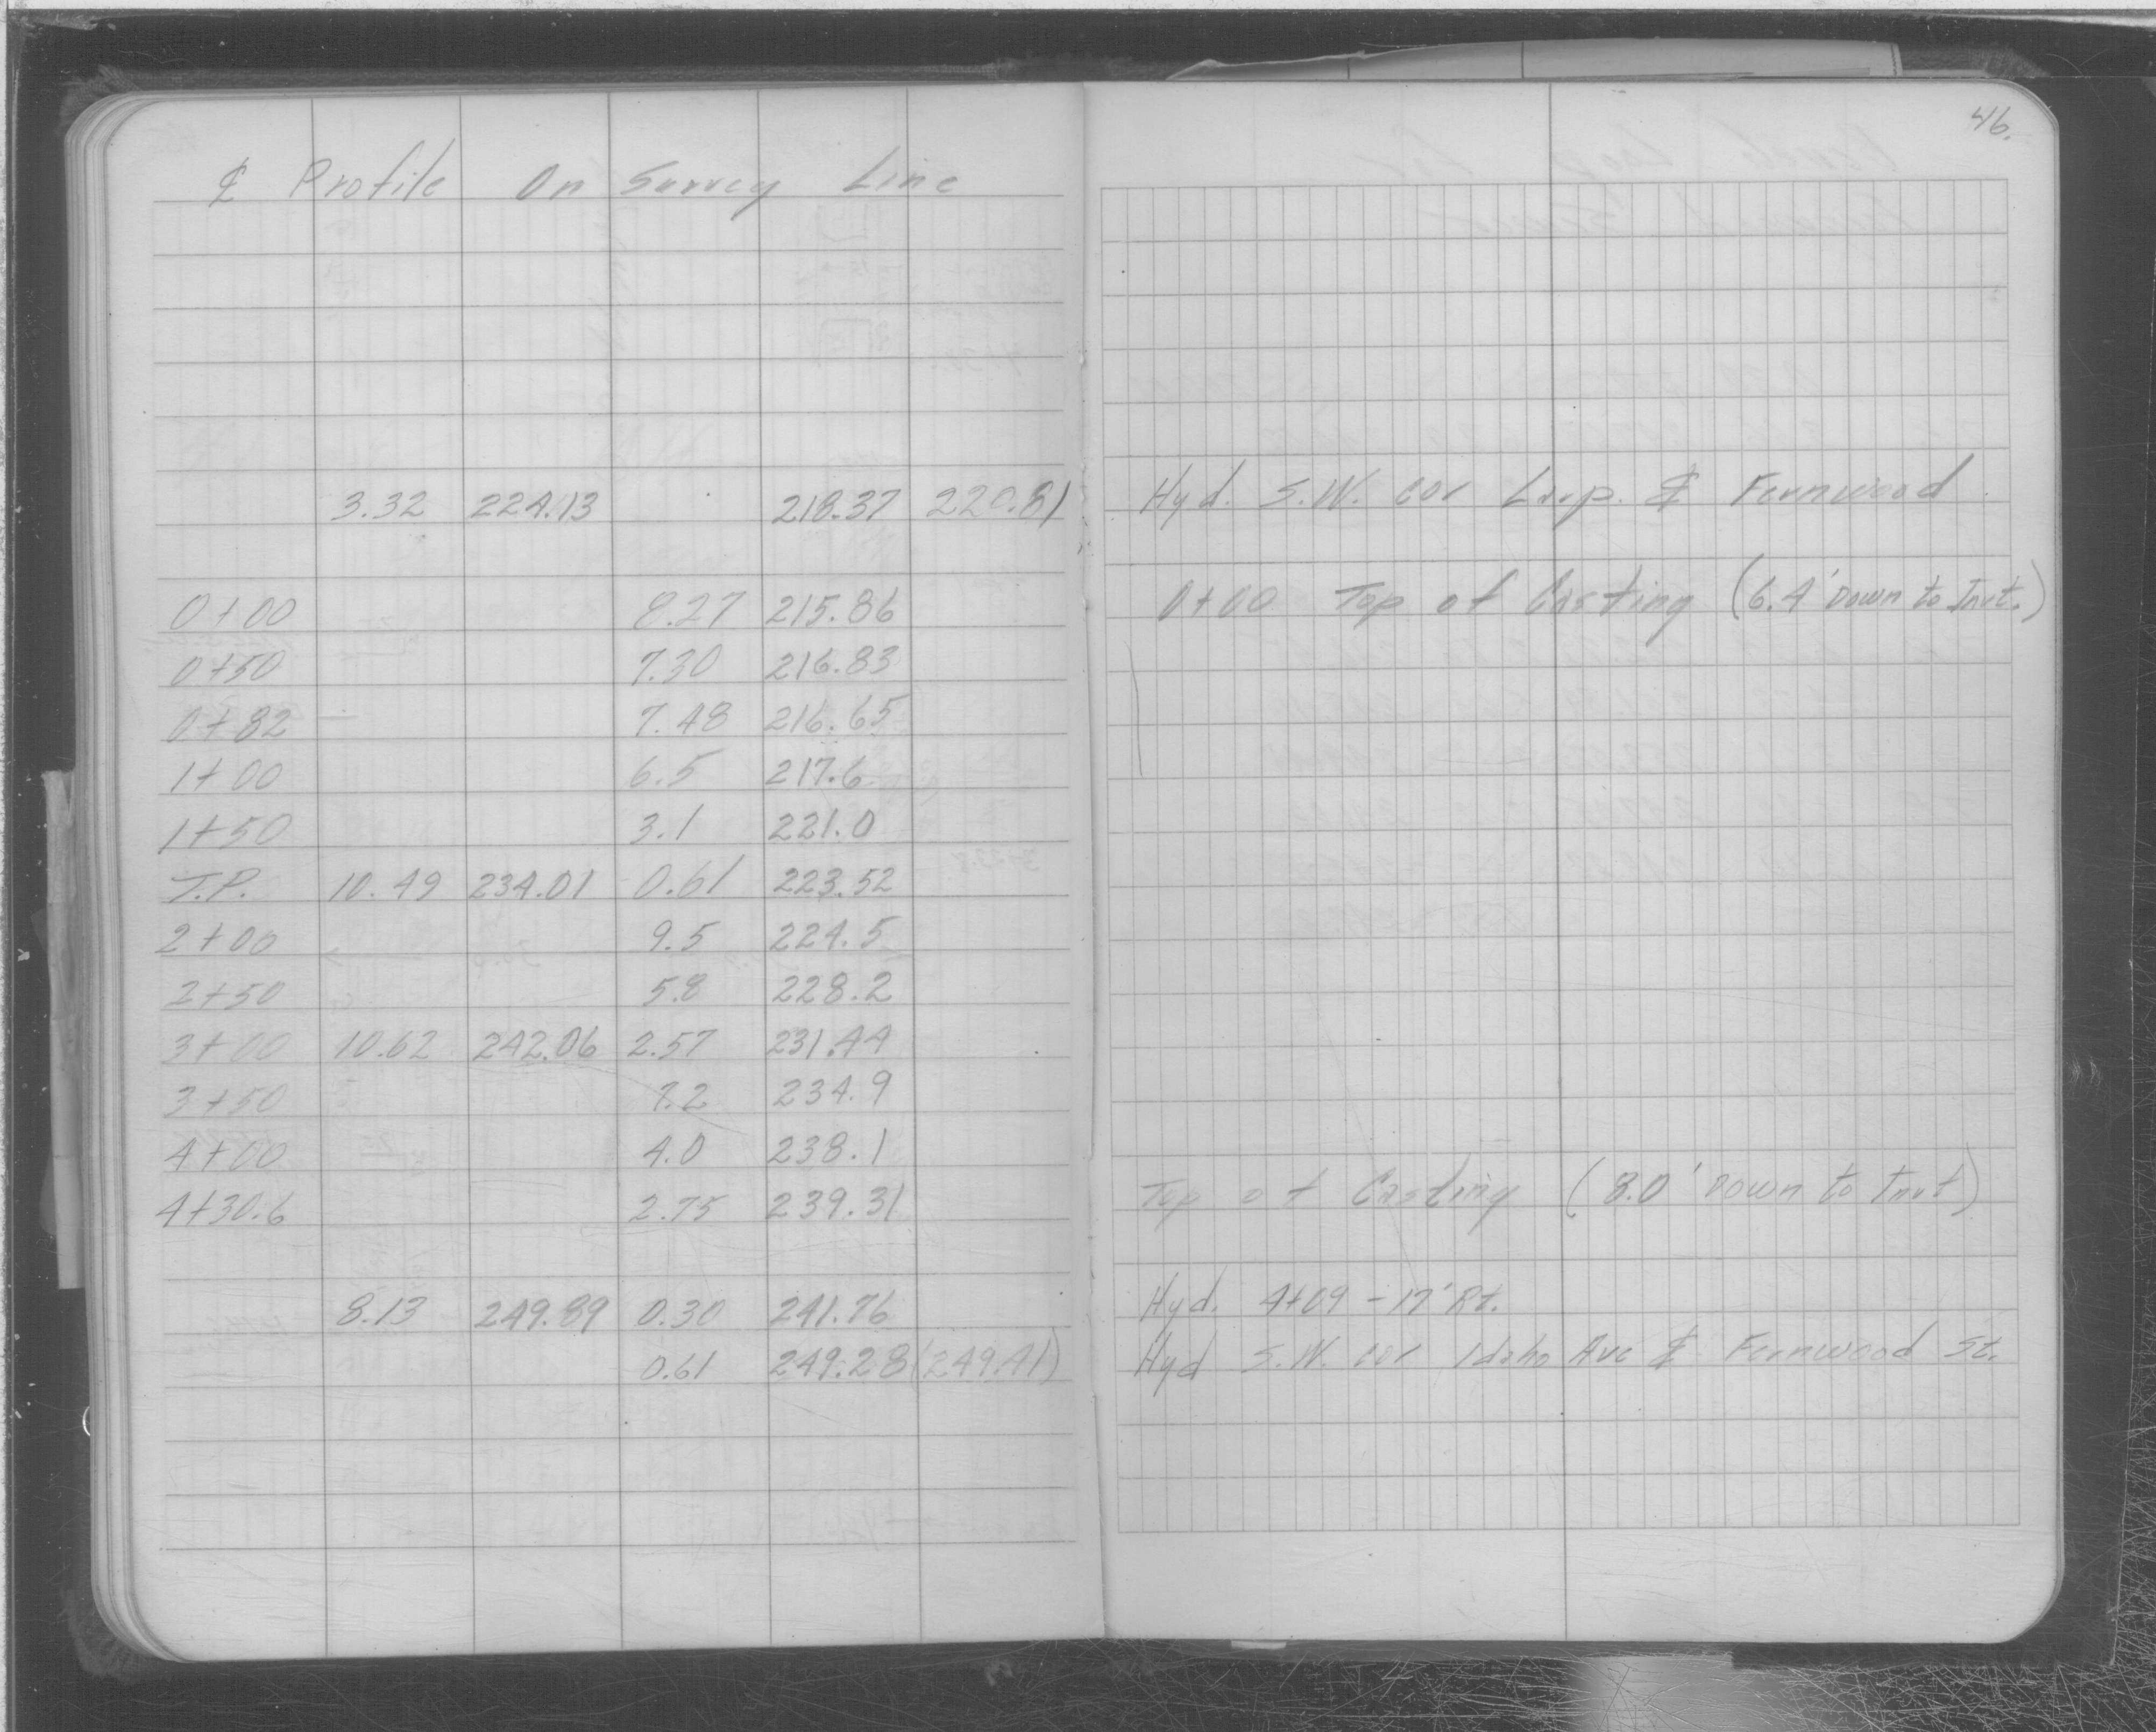 46.
℄ Profile On Survey Line
3.32 224.13 218.37 220.81 Hyd. S.W. cor Larp. & Fernwood
0+00 8.27 215.86 0+00 Top of Casting (6.4' Down to Invt.)
0+50 7.30 216.83
0+82 7.48 216.65
1+00 6.5 217.6
1+50 3.1 221.0
T.P. 10.49 234.01 0.61 223.52
2+00 9.5 224.5
2+50 5.8 228.2
3+00 10.62 242.06 2.57 231.44
3+50 7.2 234.9
4+00 4.0 238.1
4+30.6 2.75 239.31 Top of Casting (8.0' Down to Invt)
8.13 249.89 0.30 241.76 Hyd. 4+09 - 17' Rt.
0.61 249.28 (249.41) Hyd S.W. cor Idaho Ave & Fernwood St.